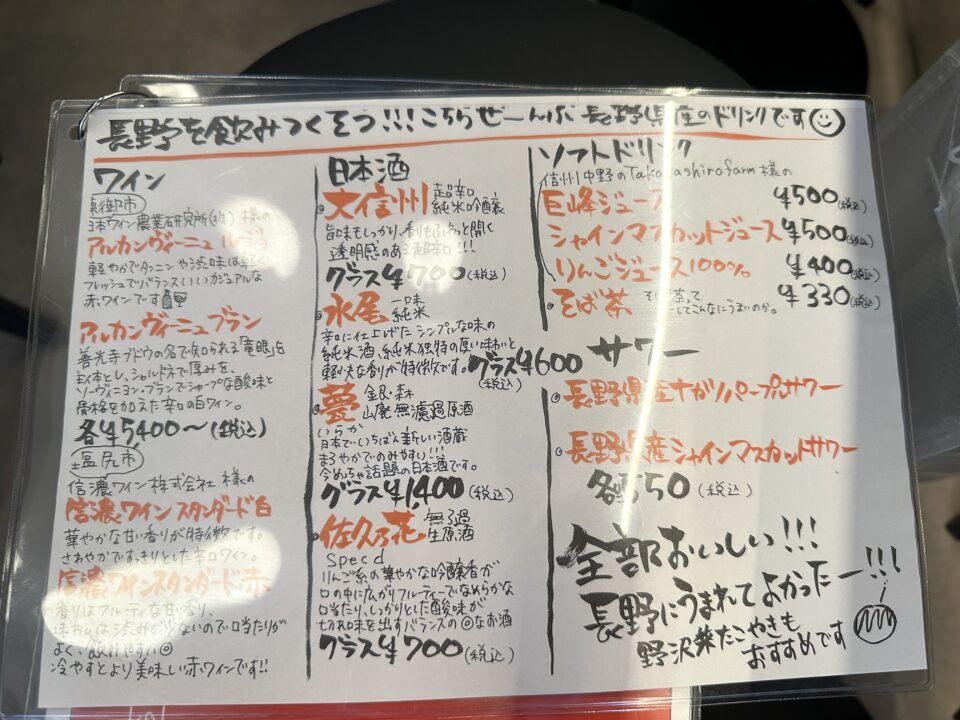 長野を飲みつくそう!!! こちらぜーんぶ長野県産のドリンクです
ワイン
東御市
日本ワイン農業研究所(株)様の
アルカンヴィーニュ ルージュ
軽やかでタンニンや渋味は軽く
フレッシュでバランスいいカジュアルな
赤ワインです
アルカンヴィーニュブラン
善光寺ブドウの名で知られる「竜眼」を
主体とし、シャルドネで厚みを、
ソーヴィニヨン・ブランでシャープな酸味と
骨格を加えた辛口の白ワイン。
各¥5400〜(税込)
塩尻市
信濃ワイン株式会社 様の
信濃ワイン スタンダード 白
華やかな甘い香りが特徴です。
さわやかですっきりとした辛口ワイン。
信濃ワインスタンダード・赤
香りはフルーティな甘い香り、
味わいは渋みが少ないので口当たりが
よく、飲みやすい◎
冷やすとより美味しい赤ワインです!!
日本酒
大信州 超辛口 純米吟醸
旨味もしっかり、香りもふわっと開く
透明感のある超辛口!!!
グラス¥700(税込)
水尾 一味 純米
辛口に仕上げたシンプルな味の
純米酒。純米独特の厚い味わいと
軽快な香りが特徴です。
グラス¥600
(税込)
甍 金銀・森 山廃 無濾過原酒
いらか
日本でいちばん新しい酒蔵
まろやかでのみやすい!!!
今めちゃ話題の日本酒です。
グラス¥1,400(税込)
佐久乃花 無ろ過 生原酒
Spec d
りんご系の華やかな吟醸香が
口の中に広がりフルーティーでなめらかな
口当たり、しっかりとした酸味が
切れ味を出すバランスの◎なお酒
グラス¥700(税込)
ソフトドリンク
信州中野のTakanashiro farm 様の
巨峰ジュース ¥500(税込)
シャインマスカットジュース ¥500(税込)
りんごジュース100% ¥400(税込)
そば茶 そば茶って ¥330(税込)
ーしてこんなにうまいのか。
サワー
長野県産ナガノパープルサワー
長野県産シャインマスカットサワー
各550(税込)
全部おいしい!!!
長野にうまれてよかったー!!!
野沢菜たこやきも
おすすめです